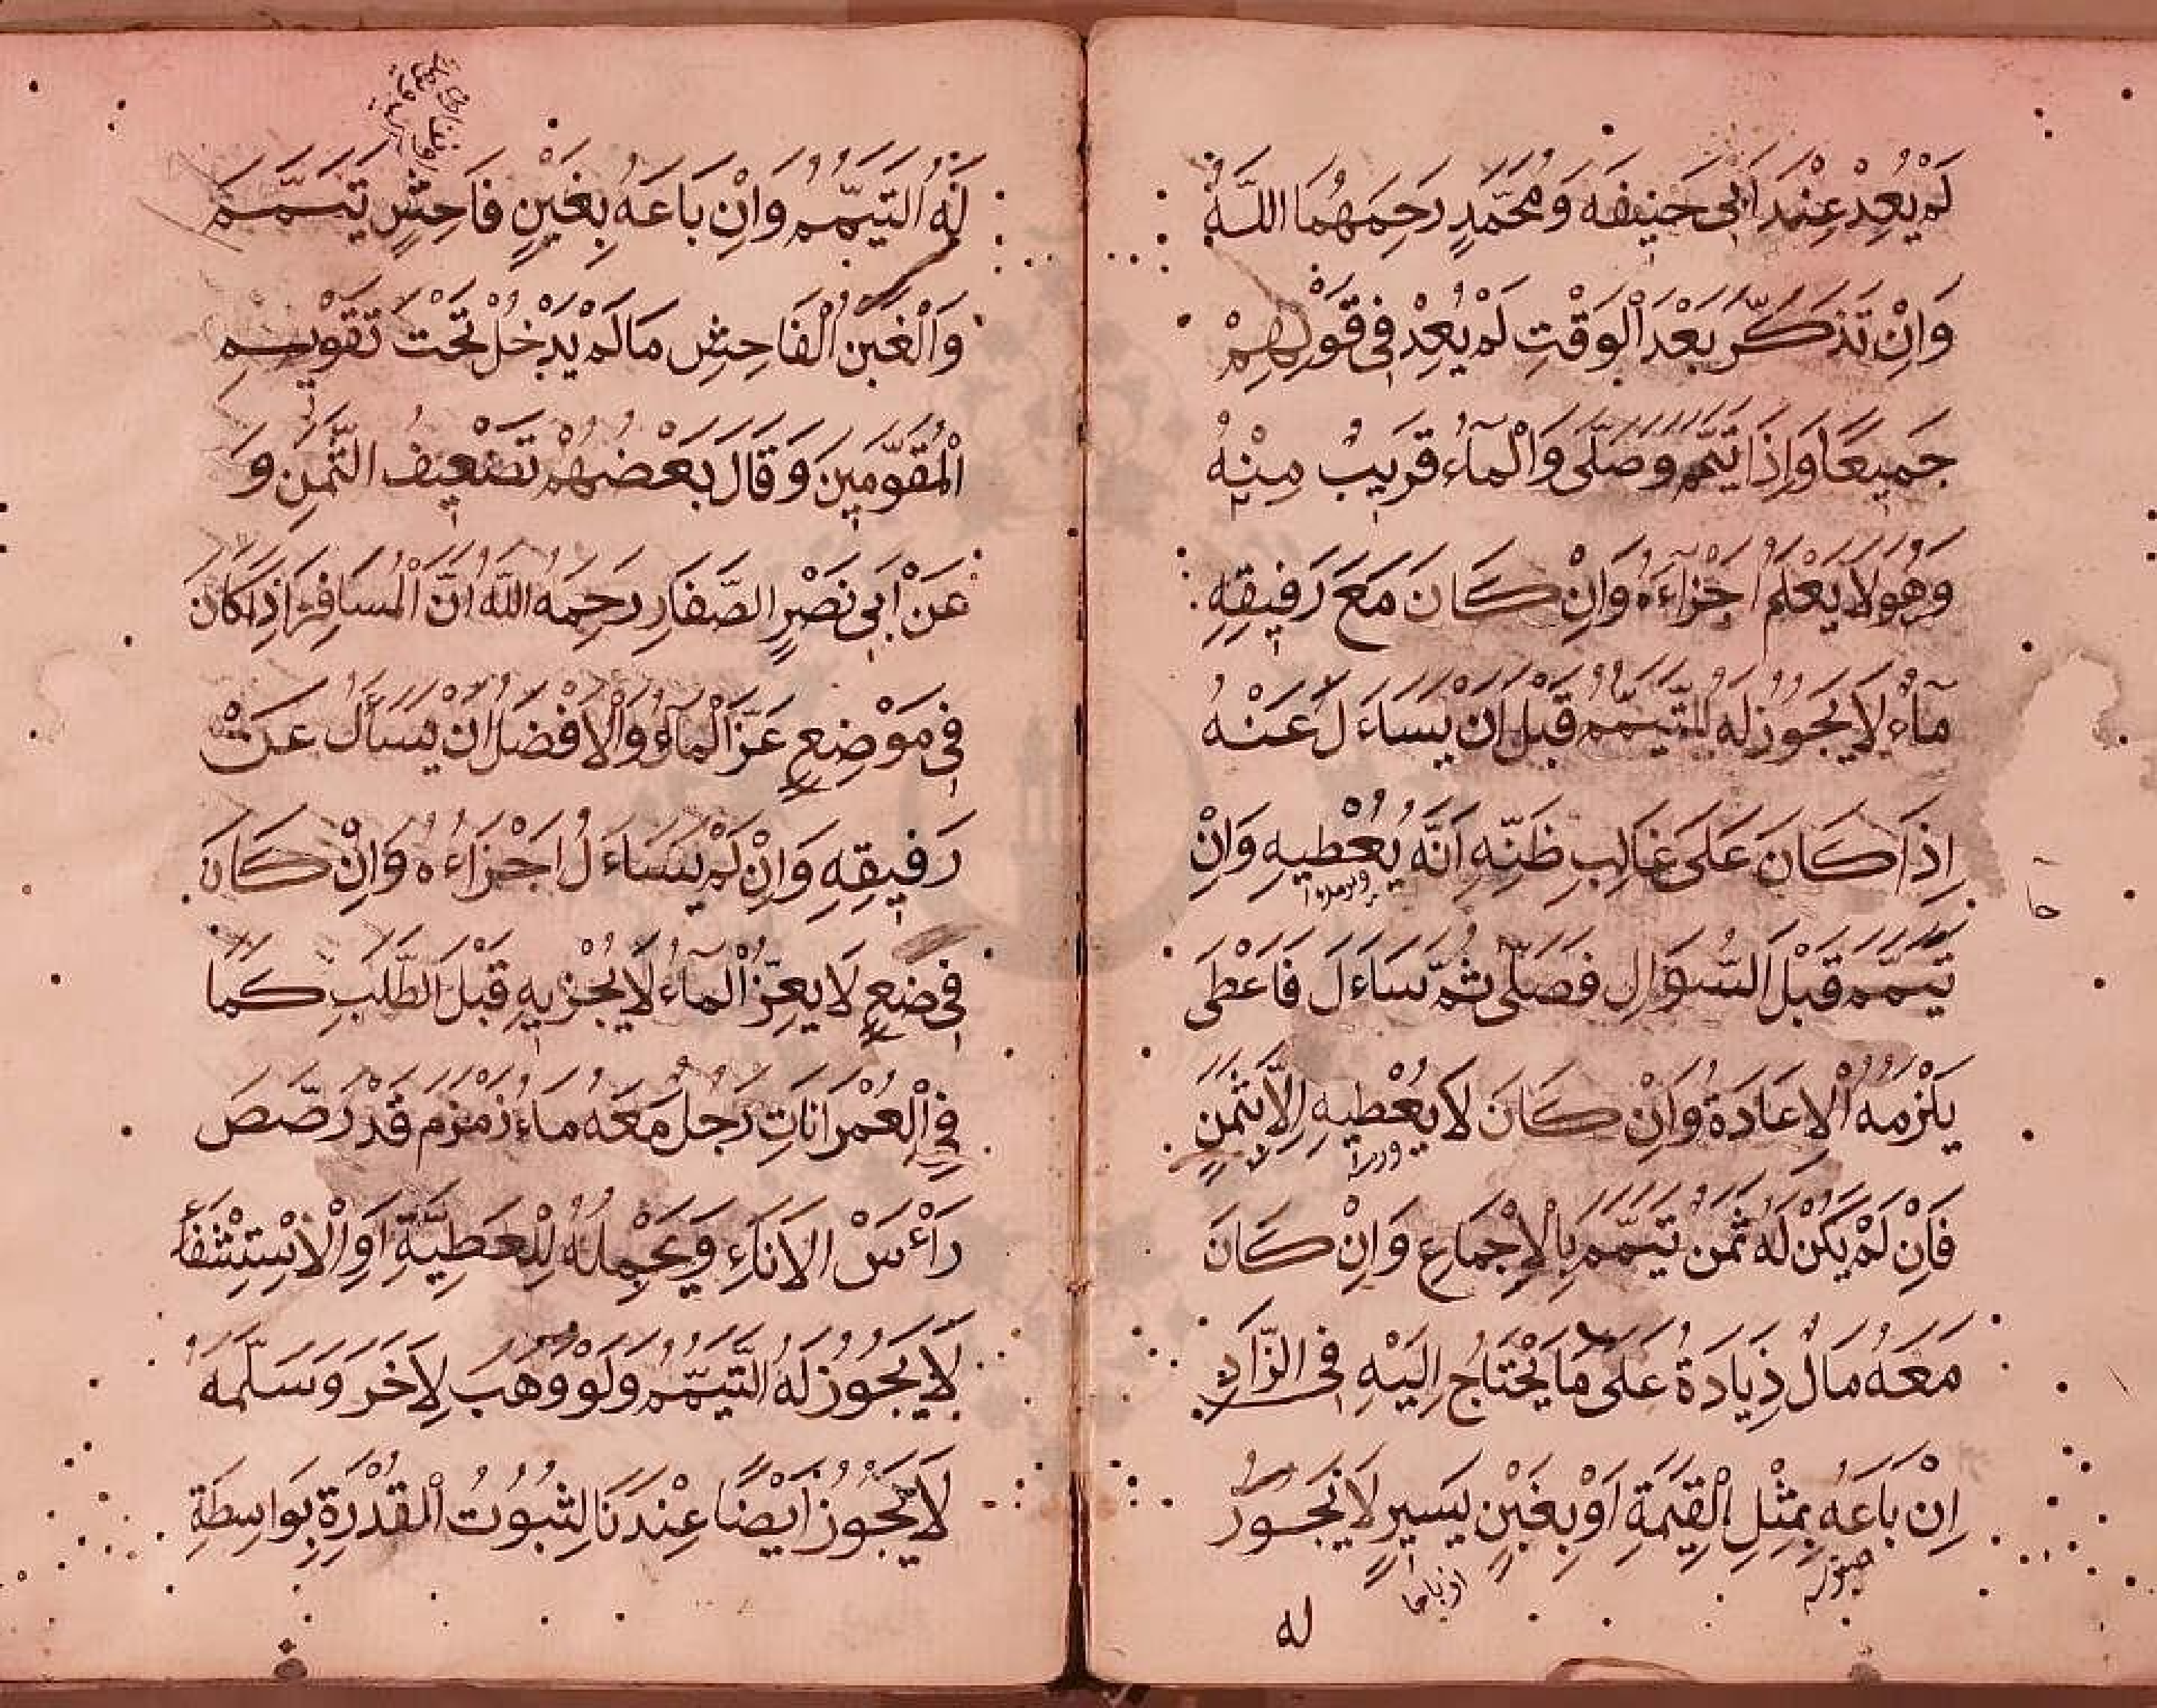 لَمْ يُعِدْ عِنْدَ اَبِى حَنِيفَه وَمُحَمَّدٍ رَحِمَهُمَا اللّٰهُ
وَاِنْ تَذَكَّرَ بَعْدَ الْوَقْتِ لَمْ يُعِدْ فِى قَوْلِهِمْ
جَمِيعًا وَاِذَا تَيَمَّمَ وَصَلَّى وَالْمَآءُ قَرِيبٌ مِنْهُ
وَهُوَ لَا يَعْلَمُ اَجْزَاءَهُ وَاِنْ كَانَ مَعَ رَفِيقِهِ
مَآءٌ لَا يَجُوزُ لَهُ للتَّيَمُّمُ قَبْلَ اَنْ يَسَاءَلَ عَنْهُ
اِذَا كَانَ عَلَى غَالِبِ ظَنِّهِ اَنَّهُ يُعْطِيهِ وَاِنْ
تَيَمَّمَ قَبْلَ السُّوَالِ فَصَلَّى ثُمَّ سَاءَلَ فَاَعْطَى
يَلْزَمُهُ الْاِعَادَةُ وَاِنْ كَانَ لَا يُعْطِيهِ اِلَّا بِثَمَنٍ
فَاِنْ لَمْ يَكُنْ لَهُ ثَمَنٌ تَيَمَّمَ بِالْاِجْمَاعِ وَاِنْ كَانَ
مَعَهُ مَالٌ ذِيَادَةٌ عَلَى مَا يَحْتَاجُ اِلَيْهِ فِى الزَّادِ
اِنْ بَاعَهُ بِمِثْلِ الْقِيمَةِ اَوْ بِغَبْنٍ يَسِيرٍ لَا يَجُوزُ
له
لَهُ التَّيَمُّمُ وَاِنْ بَاعَهُ بِغَبْنٍ فَاحِشٍ تَيَمَّمَ
وَالْغَبَنُ الْفَاحِشِ مَا لَمْ يَدْخُلْ تَحْتَ تَقْوِيمِ
الْمُقَوِّمِينَ وَقَالَ بَعْضُهُمْ تَضْعِيفُ الثَّمَنِ وَ
عَنْ اَبِى نَصْرٍ الصَّفَارِ رَحِمَهُ اللّٰهُ اَنَّ الْمُسَافِرَ اِذَا كَانَ
فِى مَوْضِعٍ عَزَّ الْمَآءُ وَالْاَفْضَلُ اَنْ يَسَأَلَ عَنْ
رَفِيقِهِ وَاِنْ لَمْ يَسَاءَلْ اَجْزَاءَهُ وَاِنْ كَانَ
فِى ضِعٍ لَا يَعِزُّ الْمَآءُ لَا يُجْزِيهِ قَبْلَ الطَّلَبِ كَمَا
فِى الْعُمْرَانَاتِ رَجُلٌ مَعَهُ مَاءُ زَمْزَمَ قَدْ رَصَّصَ
رَأْسَ الْاِنَاءِ وَيَحْمِلُهُ لِلْعَطِيَّةِ اَوِ الْاِسْتِشْفَاءِ
لَا يَجُوزُ لَهُ التَّيَمُّمُ وَلَوْ وَهَبَ لِاَخَرَ وَسَلَّمَهُ
لَا يَجُوزُ اَيْضًا عِنْدَنَا لِثُبُوتُ الْمَقْدُرَةِ بِوَاسِطَةِ